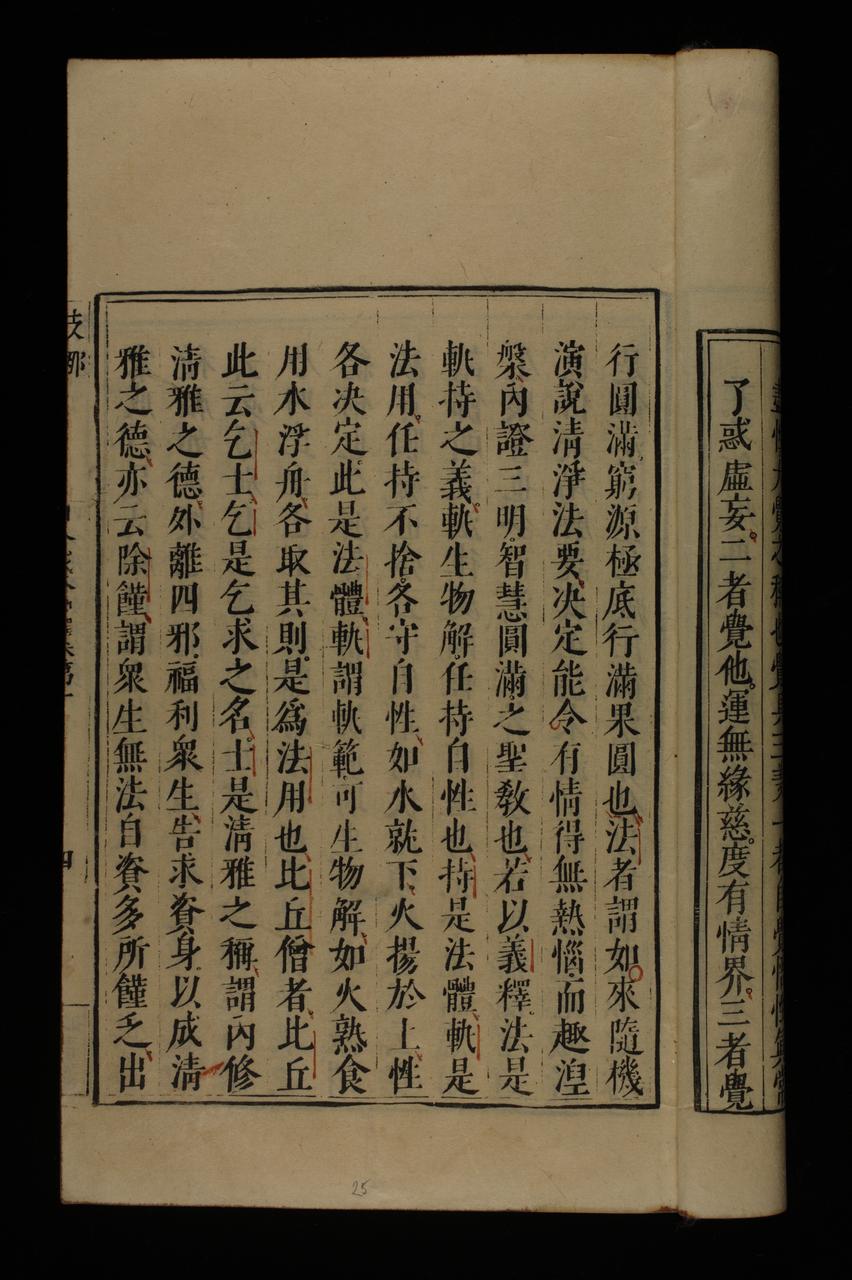 了惑虛妄二者覺他運無緣慈度有情界三者覺
行圓滿窮源極底行滿果圓也法者謂如來隨機
演說清淨法要決定能令有情得無熱惱而趣湼
槃內證三明智慧圓滿之聖敎也若以義釋法是
軌持之義軌生物解任持自性也持是法體軌是
法用任持不捨各守自性如水就下火揚於上性
各決定此是法體軌謂軌範可生物解如火熟食
用水浮舟各取其則是爲法用也比丘僧者比丘
此云乞士乞是乞求之名士是淸雅之稱謂內修
淸雅之德外離四邪福利衆生吿求資身以成淸
雅之德亦云除饉謂衆生無法自資多所饉乏出
四
25